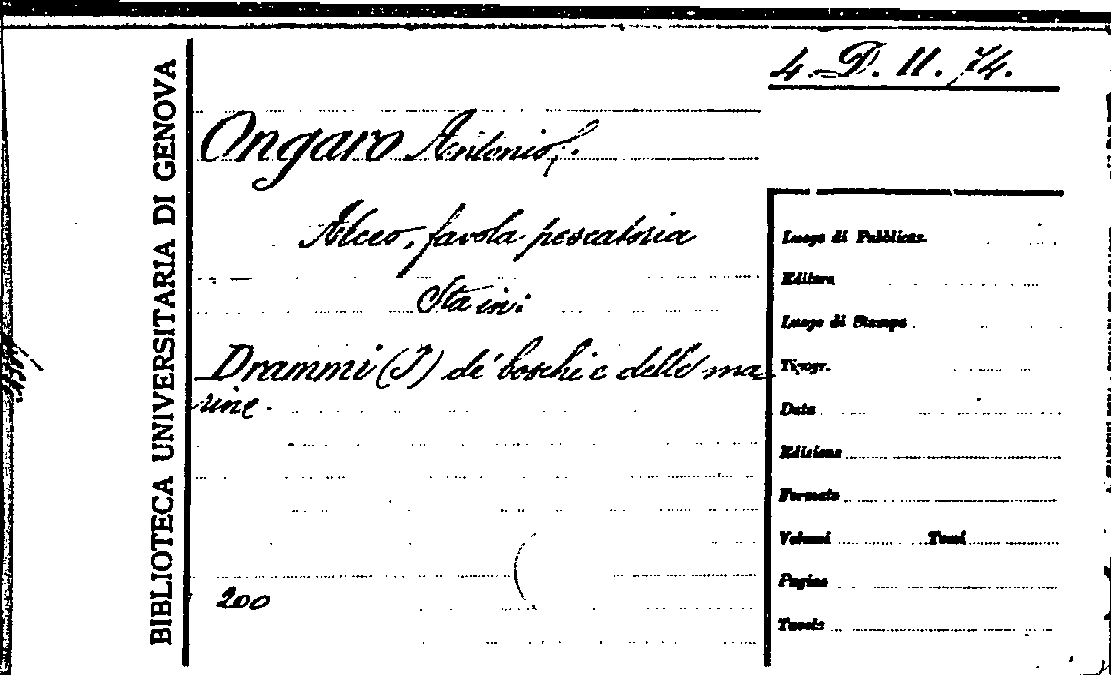 BIBLIOTECA UNIVERSITARIA DI GENOVA
4. D. II. 74.
Ongaro Antonio.
Alceo, favola pescatoria
Sta in:
Drammi (I) de' boschi e delle ma
rine.
200
Luogo di Pubblicaz.
Editore
Luogo di Stampa
Tipogr.
Data
Edizione
Formato
Volumi Tomi
Pagine
Tavole